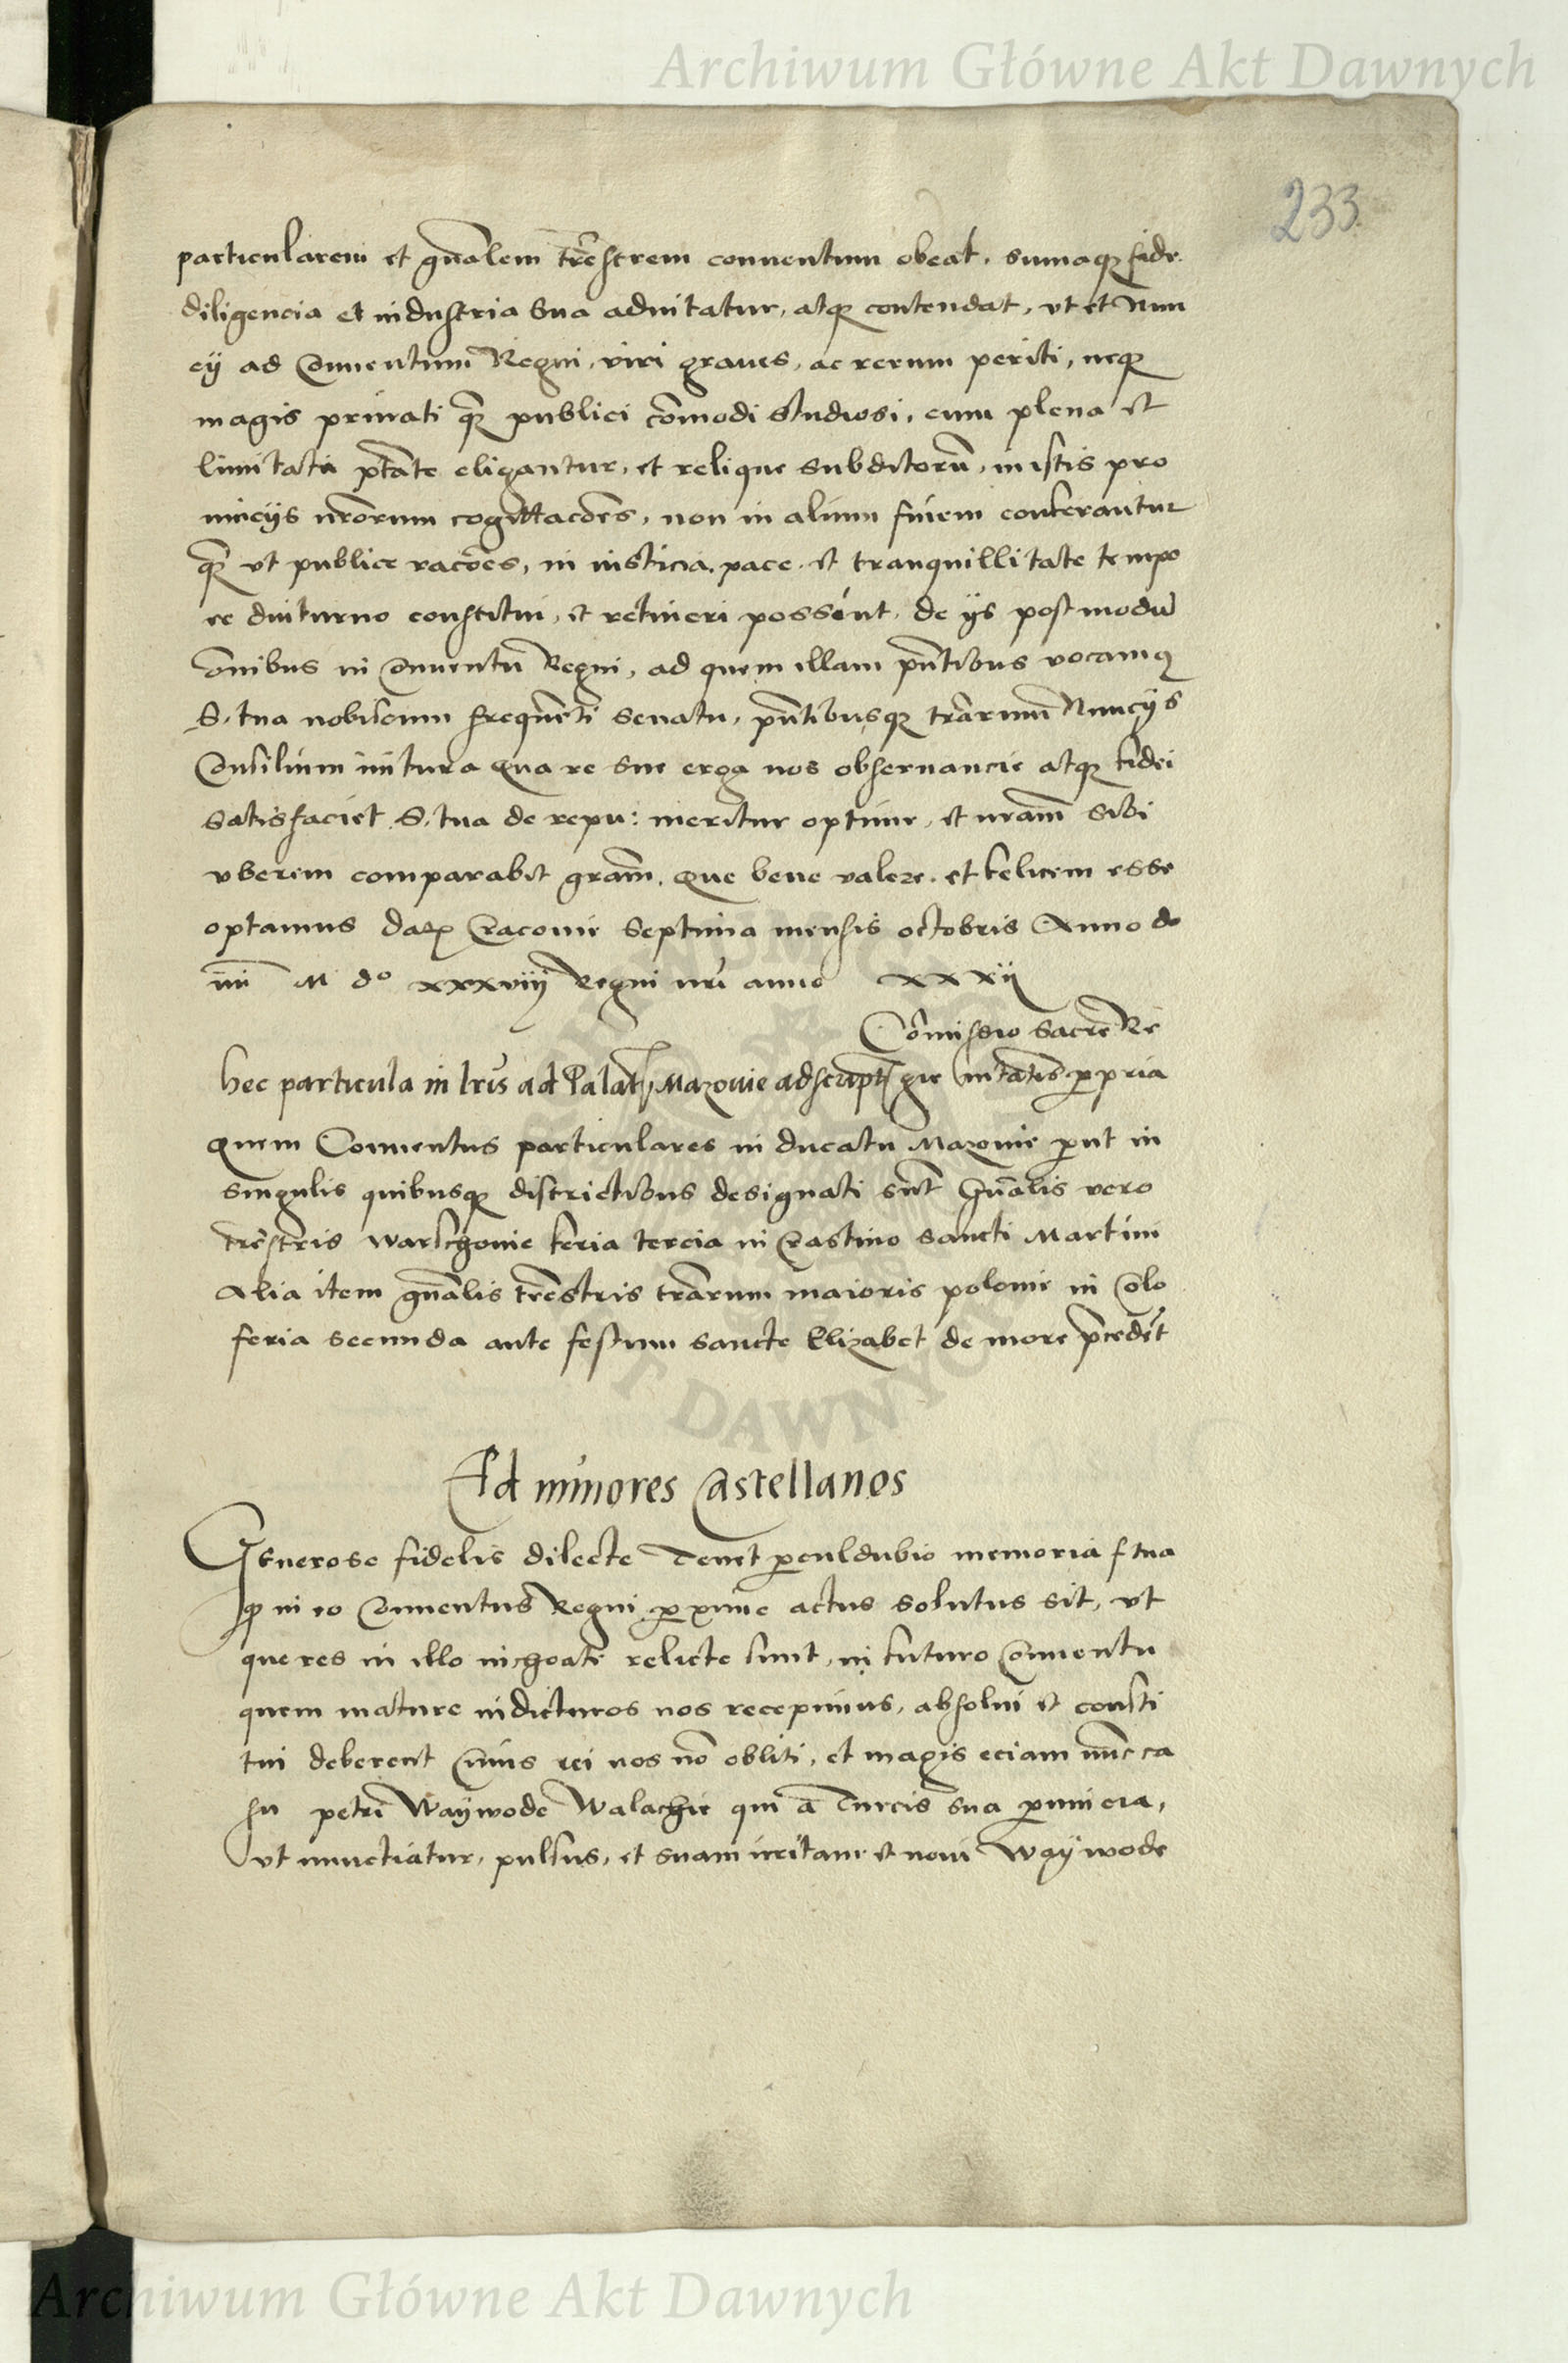 Archiwum Główne Akt Dawnych
233
particularem et gnālem trēstrem conuentum obeat, sumaqꝫ fide
diligencia et industria sua adnitatur, atqꝫ contendat, vt et Nun
cy ad Conuentum Regni, viri graues, ac rerum periti, neqꝫ
magis priuati qꝫ publici cōmodi studiosi, cum plena et
limitata ptāte eligantur, et relique subditorū, in istis pro
uincys nrōrum cogittacōes, non in alium finem conferantur
qꝫ vt publice racōes, in iusticia, pace et tranquillitate tempo
re diuturno constitui, et retineri possint, de ys postmodū
omibus in Conuentu Regni, ad quem illam pntibus vocamꝫ
S. tua nobiscum frequēti senatu, pntibusqꝫ trārum Nuncys
Consilium initura Qua re sue erga nos obseruancie atqꝫ fidei
satisfaciet S. tua de repu: meritur optime, et nrām sibi
vberem comparabit grām. Que bene valere et felicem esse
optamus Datꝫ Cracouie septima mensis octobris Anno do
mī M do xxxviij Regni nrī anno xxxij
Cōmissio sacre Re
hec particula in lrīs ad Palatꝫ Mazouie adscriptꝫ gie mtatis ppria
quem Conuentus particulares in ducatu Mazouie put in
singulis quibusqꝫ districtibus designati sūt Gnālis vero
trēstris warschouie feria tercia in Crastino sancti Martini
Alia item gnālis trēstris trārum maioris polonie in Colo
feria secunda ante festum sancte Elizabet de more pcedēt
Ad minores Castellanos
Generose fidelis dilecte Tenet pculdubio memoria f tua
qꝫ in eo Conuentus Regni pxime actus solutus sit, vt
que res in illo inchoate relicte sunt, in futuro Conuentu
quem mature indicturos nos recepimus, absolui et consti
tui deberent Cuius rei nos nō obliti, et magis eciam nūc ca
su petri Waÿwode Walachie qui a Turcis sua puincia,
vt nunctiatur, pulsus, et suam et noui Waÿwode
Archiwum Główne Akt Dawnych